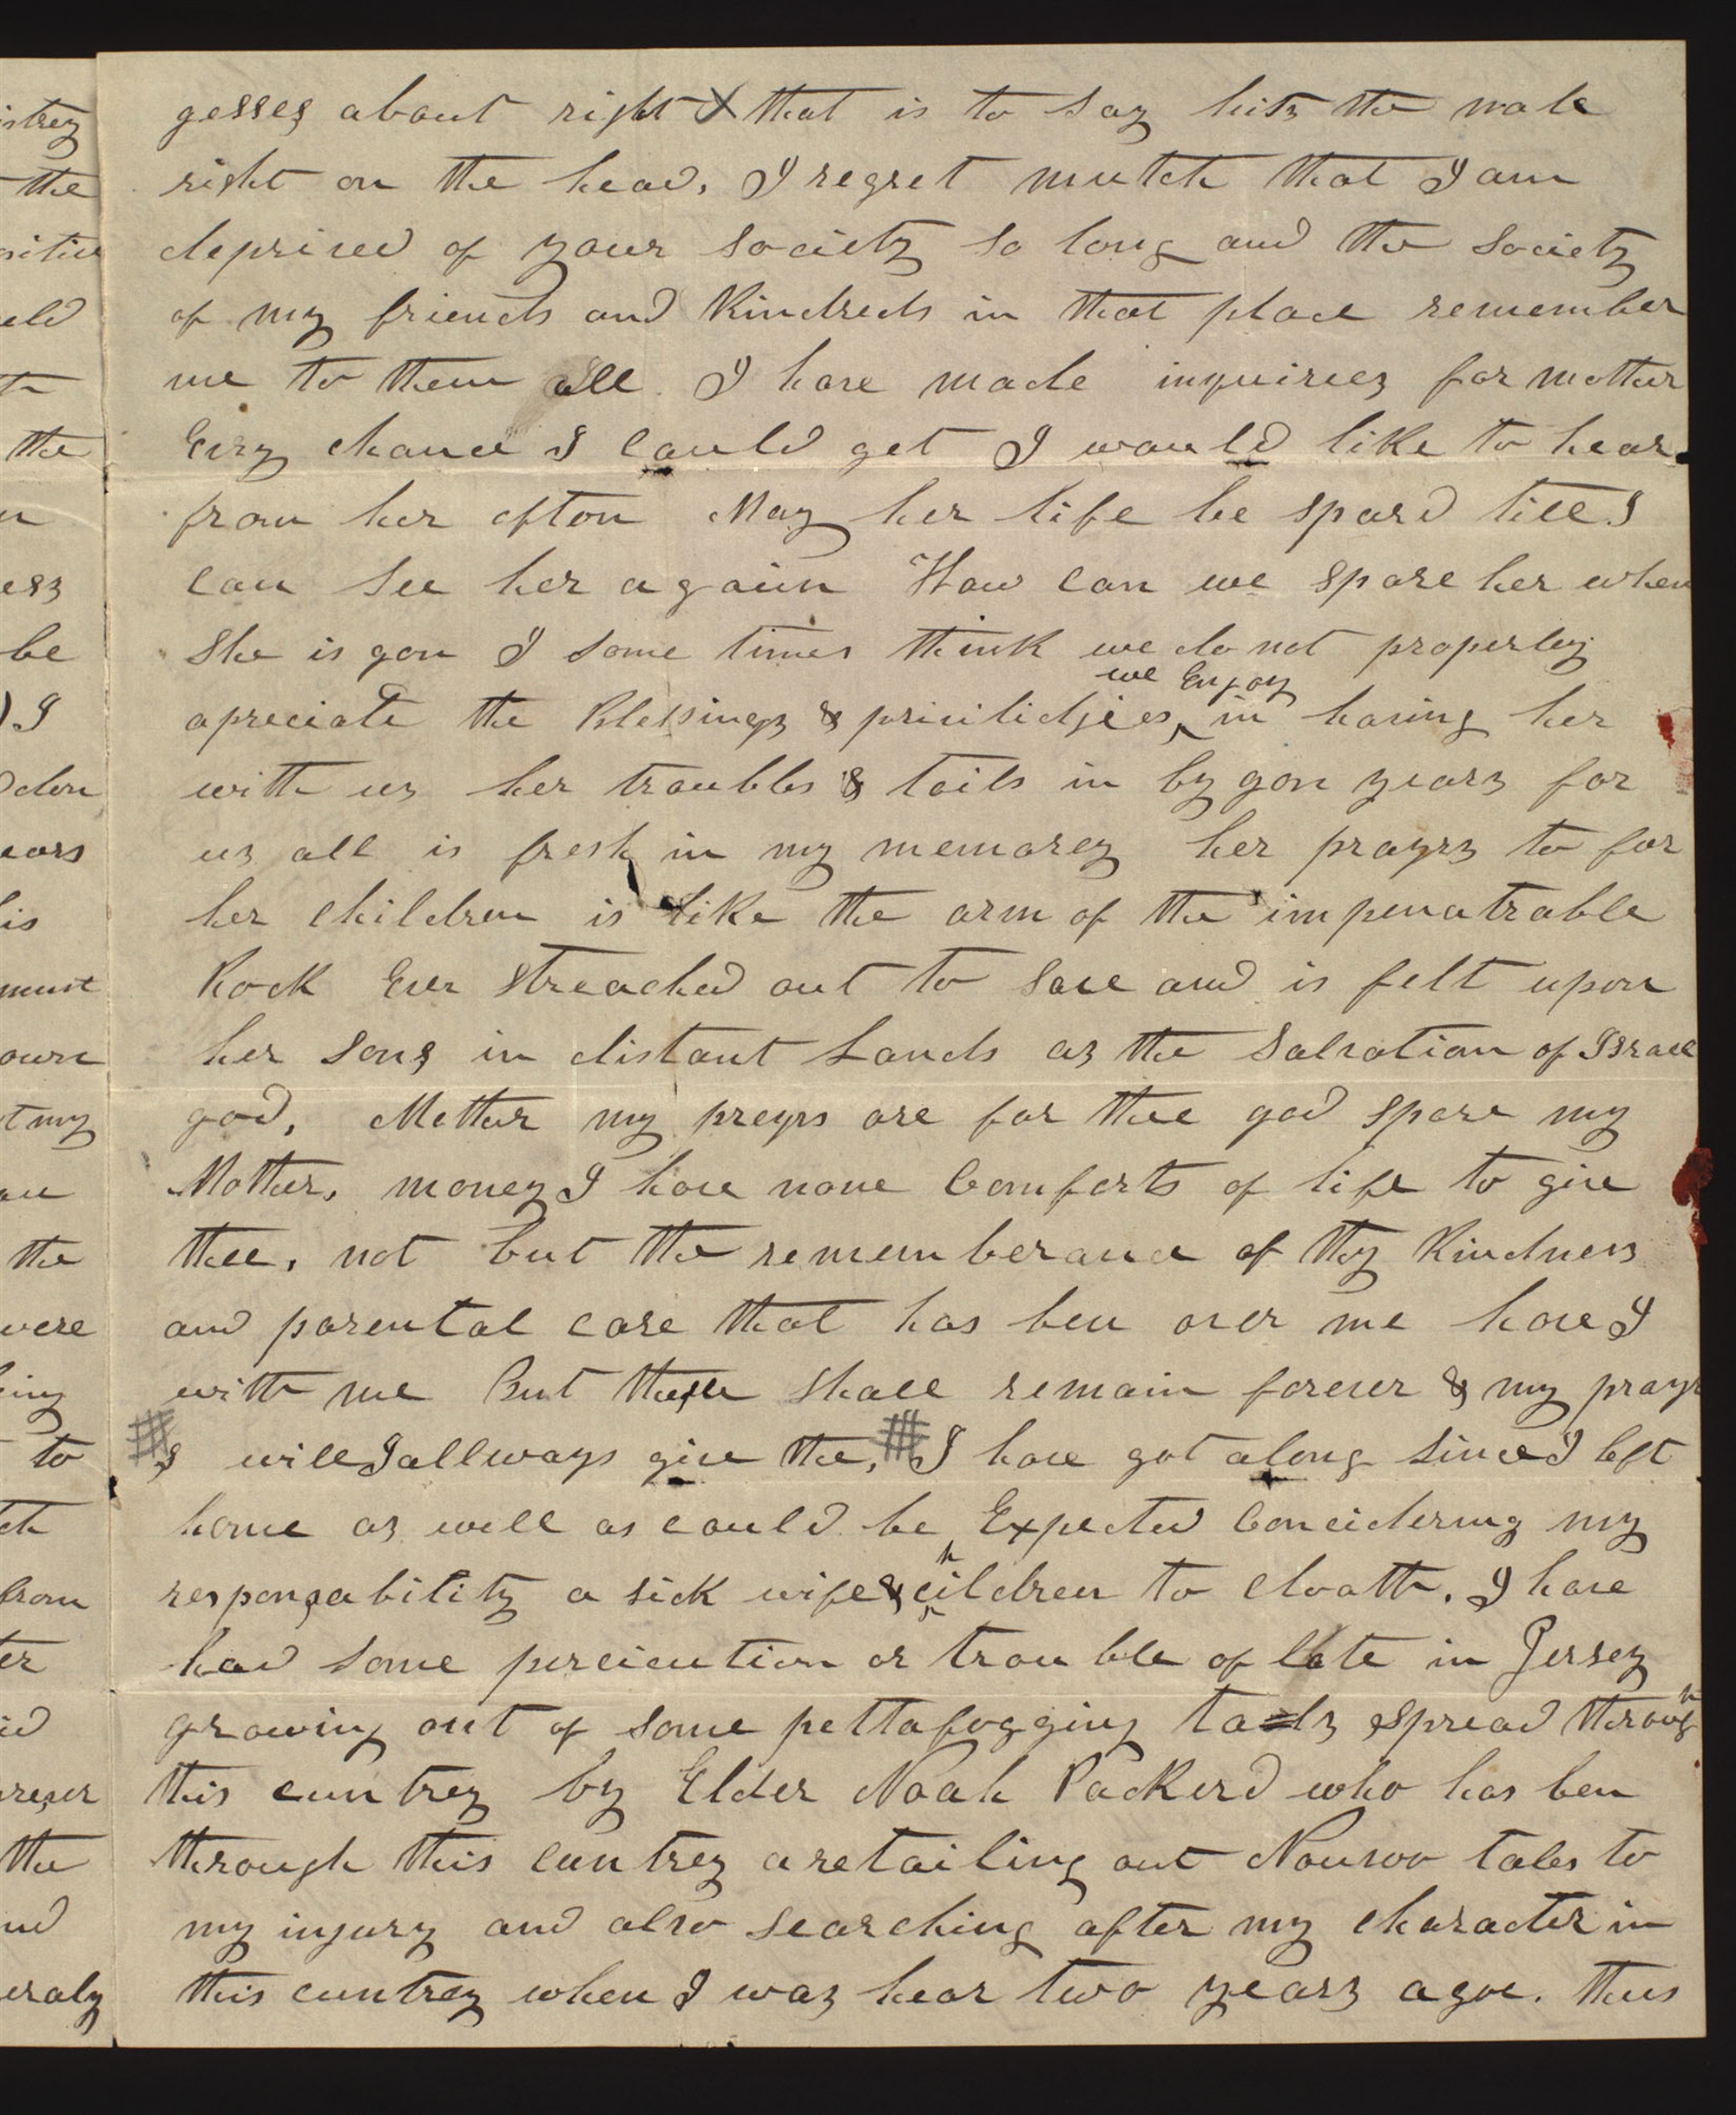 gesses about right & that is to say hits the nale
right on the head, I regret mutch that I am
deprived of your society so long and the society
of my friends and Kindreds in that place remember
me to them all. I have made inquiries for mother
Evry chance I could get I would like to hear
from her ofton May her life be spard till I
can see her again How can we spare her when
She is gon I some times think we do not properley
apreciate the Blessings & privilidjies we Enjoy in having her
with us her troubles & toils in by gon years for
us all is fresh in my memorey her prayrs to for
her children is like the arm of the impenatrable
Rock Ever streached out to save and is felt upon
her sons in distant Lands as the Salvation of Israel
god, Mother my preyrs are for thee god spare my
Mother, money I have none Comforts of life to give
thee, not but the rememberance of thy Kindness
and parental care that has ben over me have I
with me But these shall remain forever & my prayr
s will I allways give the, # I have got along since I left
home as well as could be Expected Concidering my
responsability a sick wife & children to cloath. I have
had some percicution or trouble of late in Jersey
growing out of some pettafogging tals spread through
this cuntrey by Elder Noah Packerd who has ben
through this cuntrey a retailing out Nauvoo tales to
my injury and also searching after my character in
this cuntrey when I was hear two years agoe. thus